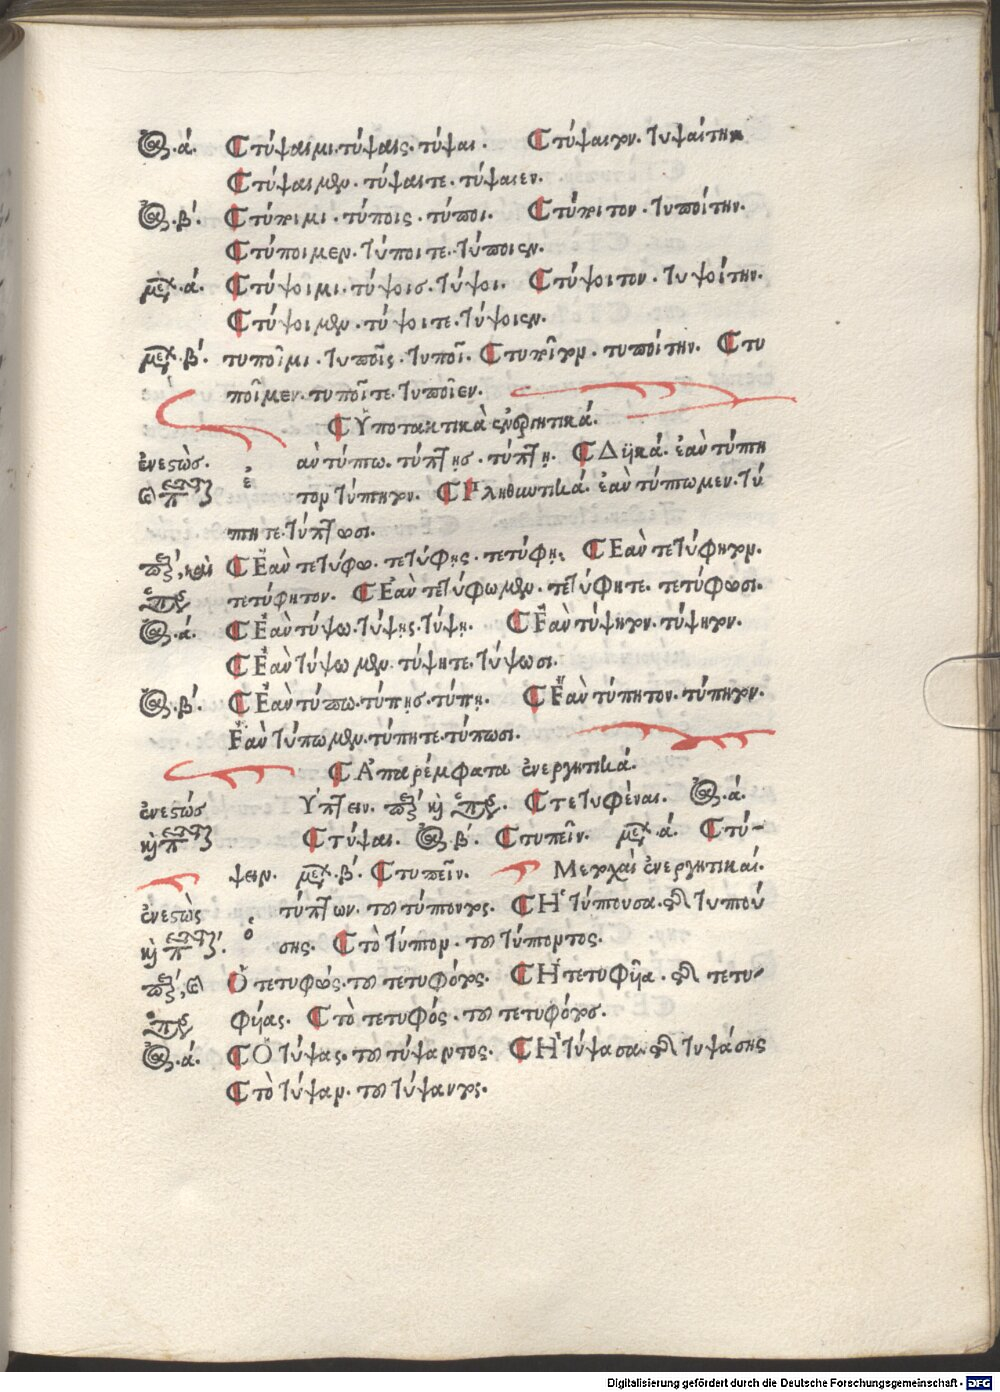 ἀ. ά. τύψαιμι. τύψαις. τύψαι. τύψαιτον. τυψαίτην
τύψαιμεν. τύψαιτε. τύψαιεν.
ἀ. β΄. τύποιμι. τύποις. τύποι. τύποιτον. τυποίτην.
τύποιμεν. τύποιτε. τύποιεν.
μεχ. ά. τύψοιμι. τύψοις. τύψοι. τύψοιτον. τυψοίτην.
τύψοιμεν. τύψοιτε. τύψοιεν.
μεχ. β΄. τυποῖμι. τυποῖς. τυποῖ. τυποῖτον. τυποίτην. τυ
ποῖμεν. τυποῖτε. τυποῖεν.
Ὑποτακτικὰ ἐνεργητικά.
ἐνεστὼς. ἐ αὺ τύπτω. τύπτῃς. τύπτῃ. Δϋικά. ἐαὺ τύπτη
τον τύπτητον. Πληθυντικά. ἐαὺ τύπτωμεν. τύ
πτητε. τύπτωσι.
Ἐαὺ τετύφω. τετύφῃς. τετύφῃ. Ἐαὺ τετύφητον.
τετύφητον. Ἐαὺ τετύφωμεν. τετύφητε. τετύφωσι.
ἀ. ά. Ἐαὺ τύψω. τύψῃς. τύψῃ. Ἐαὺ τύψητον. τύψητον.
Ἐαὺ τύψωμεν. τύψητε. τύψωσι.
ἀ. β΄. Ἐαὺ τύπω. τύπῃς. τύπῃ. Ἐαὺ τύπητον. τύπητον.
Ἐαὺ τύπωμεν. τύπητε. τύπωσι.
Ἀπαρέμφατα ἐνεργητικά.
ἐνεστώς Ύπτειν. τετυφέναι. ἀ. ά.
τύψαι. ἀ. β΄. τυπεῖν. μεχ. ά. τύ-
ψειν. μεχ. β΄. τυπεῖν. Μετοχαὶ ἐνεργητικαί.
ἐνεστὼς ὁ τύπτων. τοῦ τύπτοντος. Ἡ τύπτουσα. τῆς τυπτού
σης. τὸ τύπτον. τοῦ τύπτοντος.
Ὁ τετυφώς. τοῦ τετυφότος. Ἡ τετυφῦια. τῆς τετυ-
φύιας. τὸ τετυφός. τοῦ τετυφότος.
ἀ. ά. Ὁ τύψας. τοῦ τύψαντος. Ἡ τύψασα. τῆς τυψάσης
τὸ τύψαν. τοῦ τύψαντος.
Digitalisierung gefördert durch die Deutsche Forschungsgemeinschaft - DFG